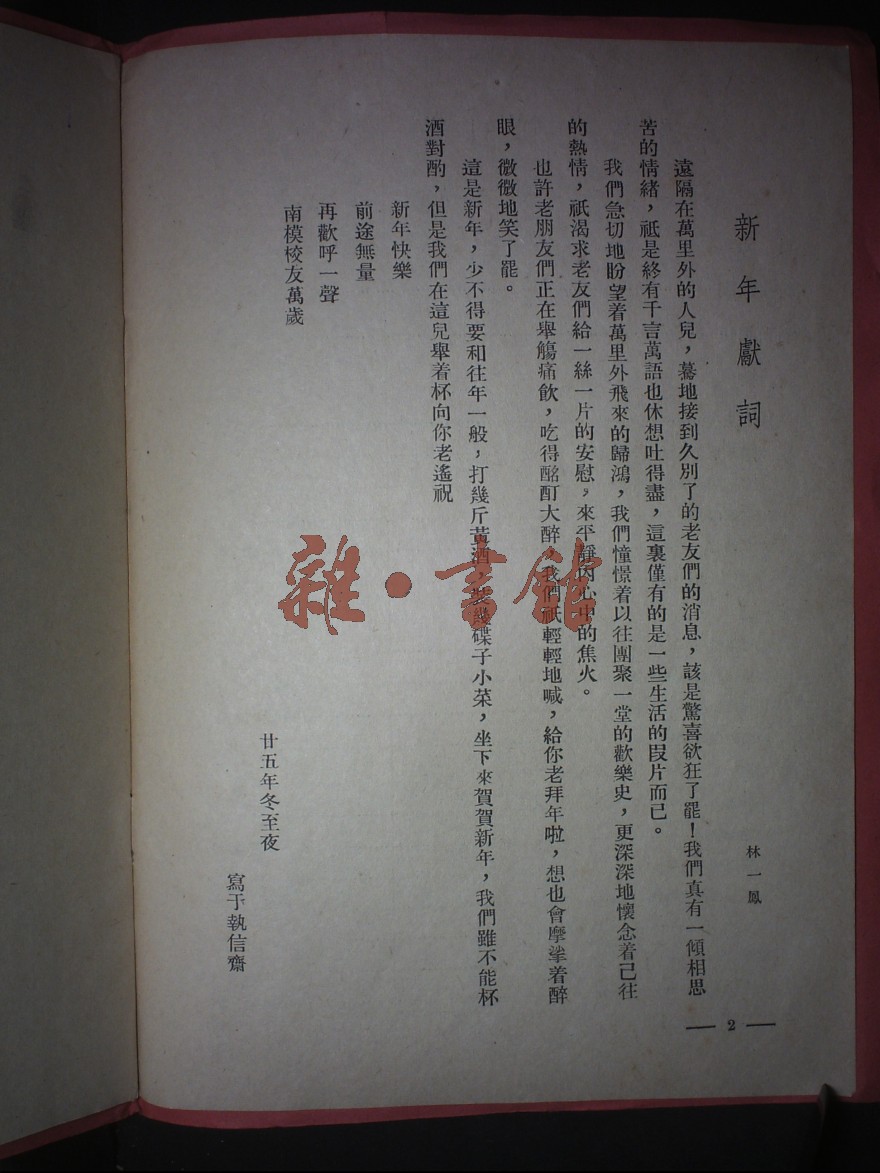 新年獻詞
林一鳳
遠隔在萬里外的人兒，驀地接到久別了的老友們的消息，該是驚喜欲狂了罷！我們真有一傾相思
苦的情緒，祇是終有千言萬語也休想吐得盡，這裏僅有的是一些生活的段片而已。
我們急切地盼望着萬里外飛來的歸鴻，我們憧憬着以往團聚一堂的歡樂史，更深深地懷念着已往
的熱情，祇渴求老友們給一絲一片的安慰，來平靜內心中的焦火。
也許老朋友們正在舉觴痛飲，吃得酩酊大醉，我們祇輕輕地喊，給你老拜年啦，想也會摩挲着醉
眼，微微地笑了罷。
這是新年，少不得要和往年一般，打幾斤黃酒，裝幾碟子小菜，坐下來賀賀新年，我們雖不能杯
酒對酌，但是我們在這兒舉着杯向你老遙祝
新年快樂
前途無量
再歡呼一聲
南模校友萬歲
廿五年冬至夜
寫于執信齋
— 2 —
雜·書館